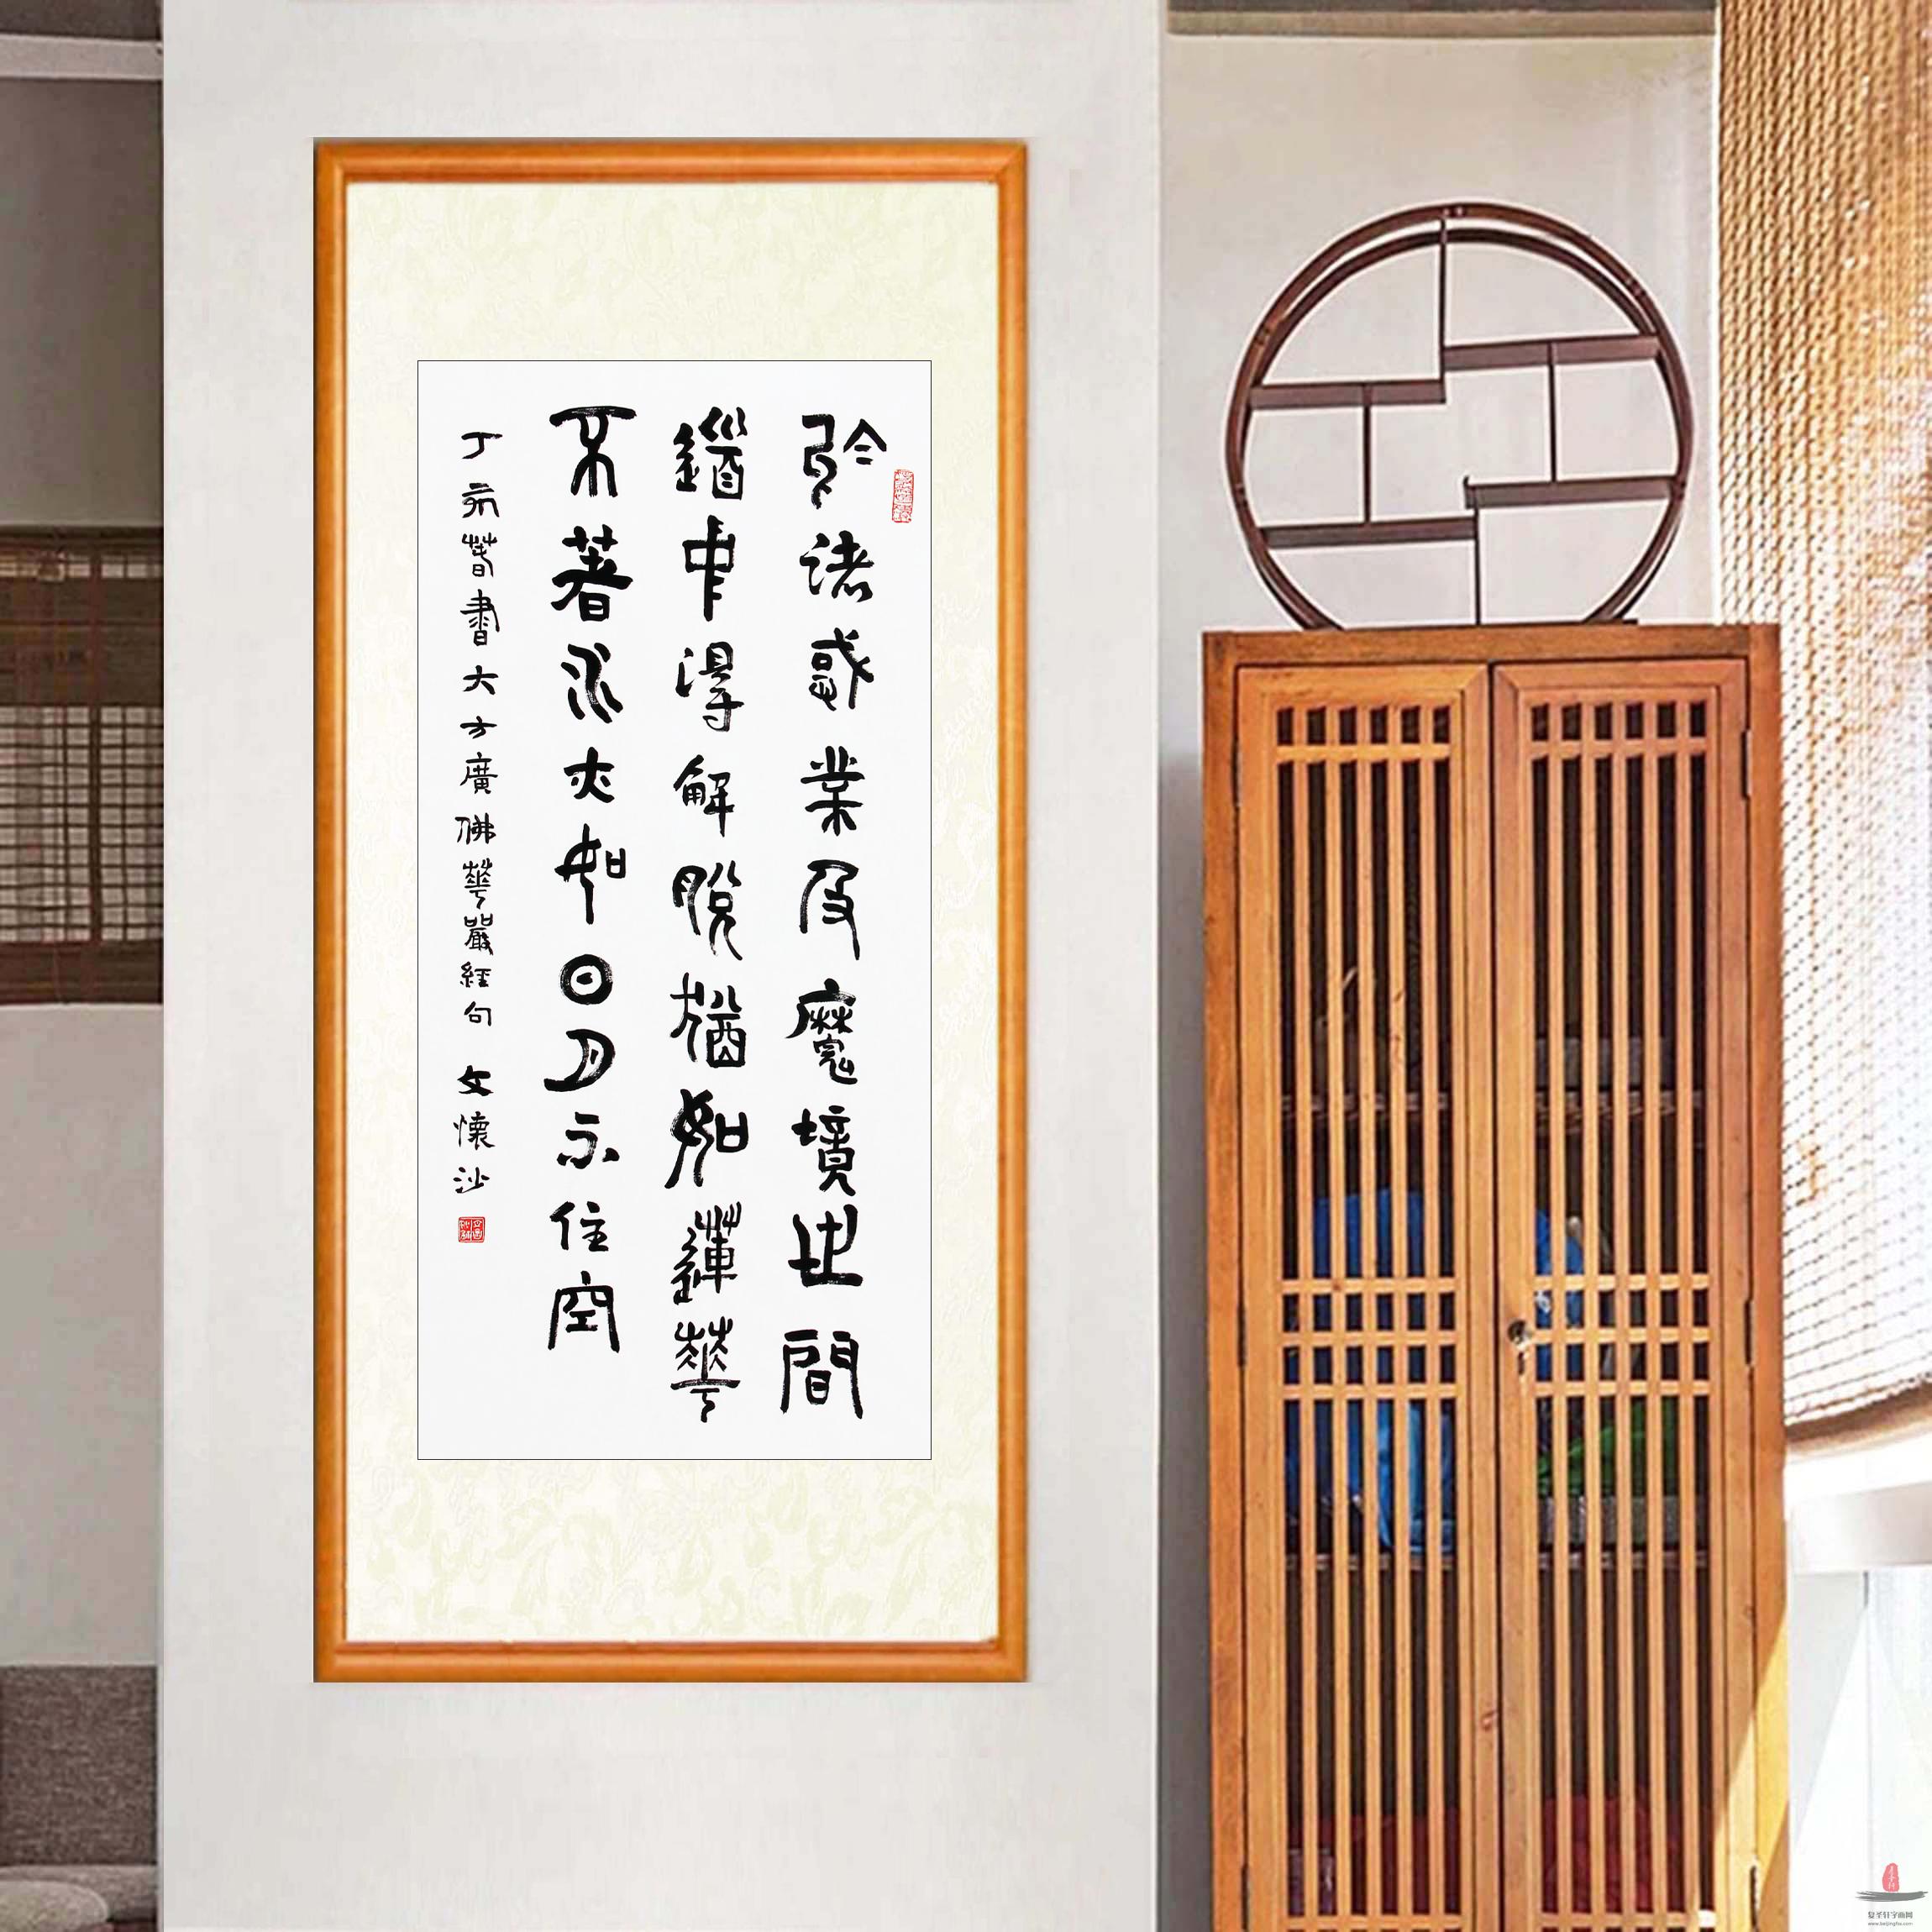 於諸惑業及魔境世間
道中得解脫猶如蓮華
不著水亦如日月不住空
丁亥春書大方廣佛華嚴經句 文懷沙
复圣轩字画网